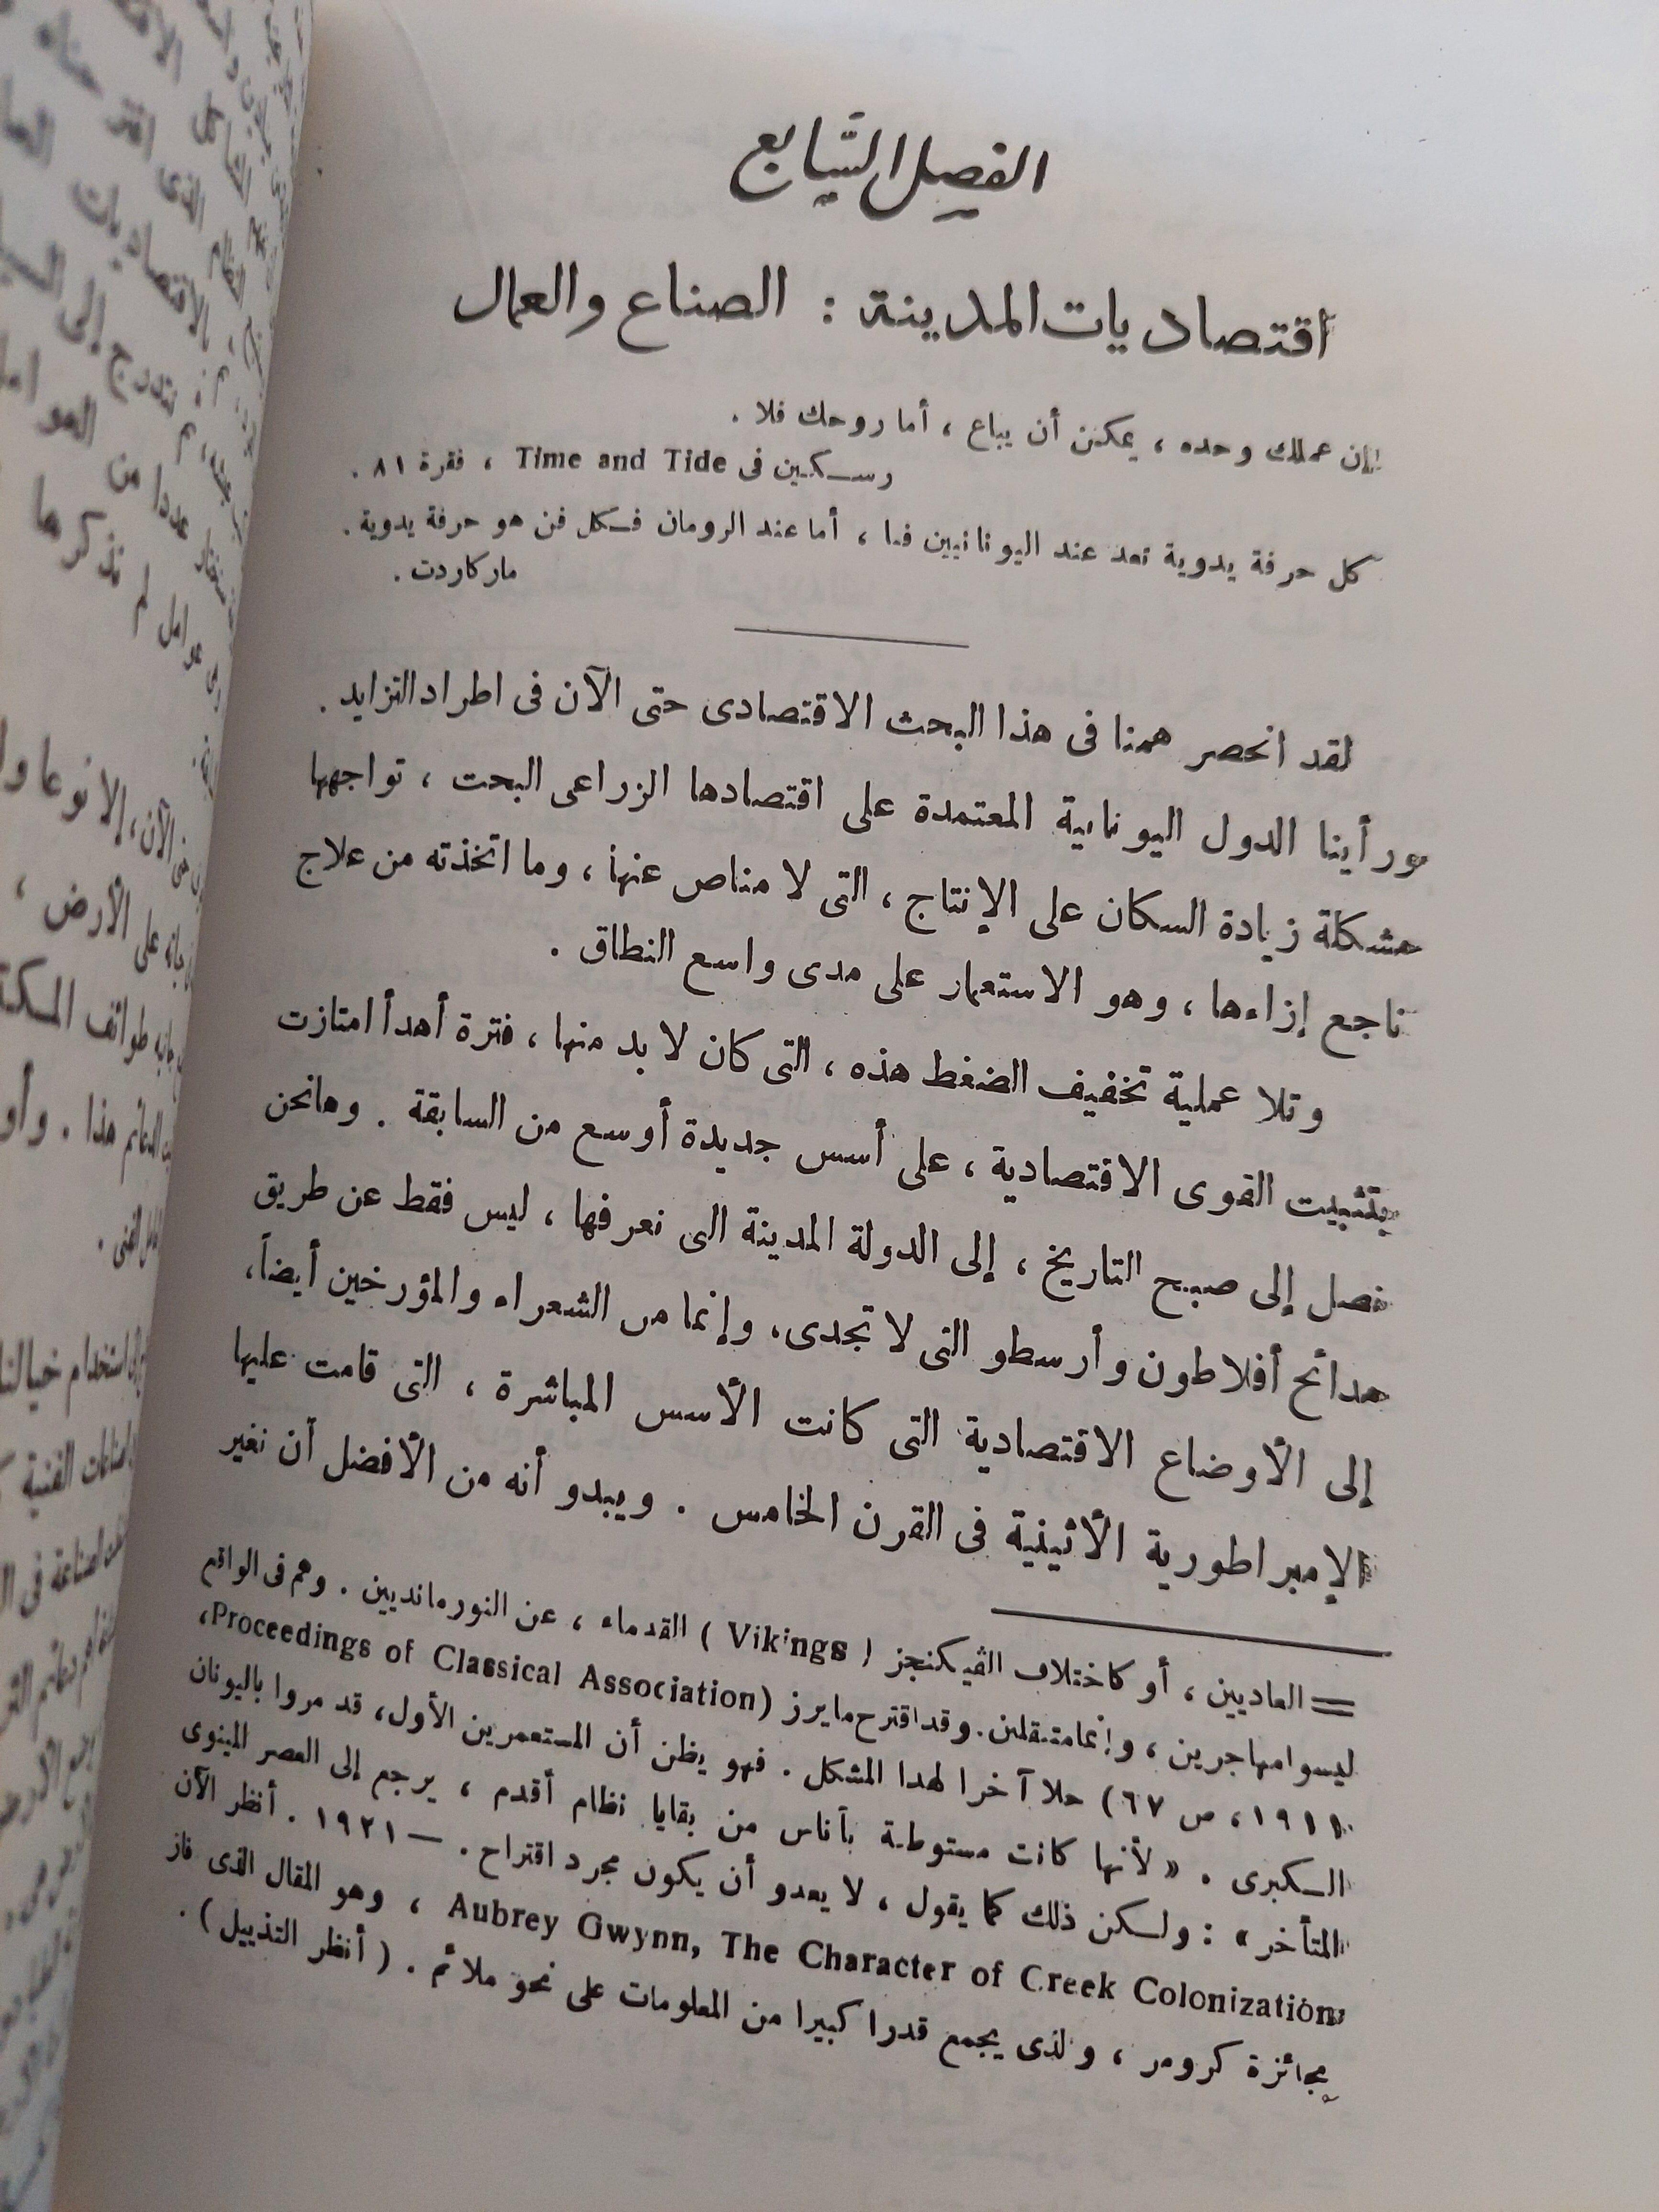 الفصل السابع
اقتصاديات المدينة : الصناع والعمال
إن عملك وحده ، يمكن أن يباع ، أما روحك فلا .
رسكين فى Time and Tide ، فقرة ٨١ .
كل حرفة يدوية تعد عند اليونانيين فنا ، أما عند الرومان فكل فن هو حرفة يدوية .
ماركاردت .
لقد انحصر همنا فى هذا البحث الاقتصادى حتى الآن فى اطراد التزايد .
ورأينا الدول اليونانية المعتمدة على اقتصادها الزراعى البحت ، تواجهها
مشكلة زيادة السكان على الإنتاج ، التى لا مناص عنها ، وما اتخذته من علاج
ناجع إزاءها ، وهو الاستعمار على مدى واسع النطاق .
وتلا عملية تخفيف الضغط هذه ، التى كان لا بد منها ، فترة أهدأ امتازت
بتثبيت القوى الاقتصادية ، على أسس جديدة أوسع من السابقة . وهانحن
نصل إلى صبح التاريخ ، إلى الدولة المدينة التى نعرفها ، ليس فقط عن طريق
مدائح أفلاطون وأرسطو التى لا تجدى ، وإنما من الشعراء والمؤرخين أيضاً ،
إلى الأوضاع الاقتصادية التى كانت الأسس المباشرة ، التى قامت عليها
الإمبراطورية الأثينية فى القرن الخامس . ويبدو أنه من الأفضل أن نغير
= العاديين ، أو كاختلاف الفيكنجز ( Vikings ) القدماء ، عن النورمانديين . وهم فى الواقع
ليسوا مهاجرين ، وإنما متنقلين . وقد اقترح مايرز (Proceedings of Classical Association ،
١٩١١ ، ص ٦٧) حلا آخرا لهذا المشكل . فهو يظن أن المستعمرين الأول ، قد مروا باليونان
الكبرى . « لأنها كانت مستوطنة بأناس من بقايا نظام أقدم ، يرجع إلى العصر المينوى
المتأخر » : ولكن ذلك كما يقول ، لا يعدو أن يكون مجرد اقتراح . — ١٩٢١ . أنظر الآن
Aubrey Gwynn, The Character of Greek Colonization ، وهو المقال الذى فاز
بجائزة كرومر ، والذى يجمع قدرا كبيرا من المعلومات على نحو ملائم . ( أنظر التذييل ) .